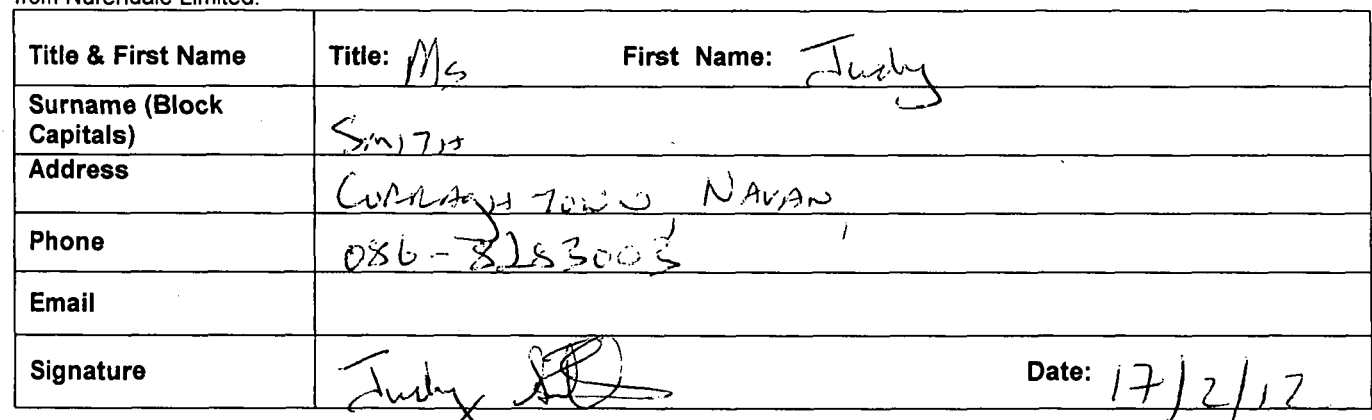 from Nurendale Limited.
Title & First Name Title: Ms First Name: Judy
Surname (Block Capitals) SMITH
Address CURRAGHTOWN, NAVAN,
Phone 086-8283003
Email
Signature Judy Date: 17/2/12